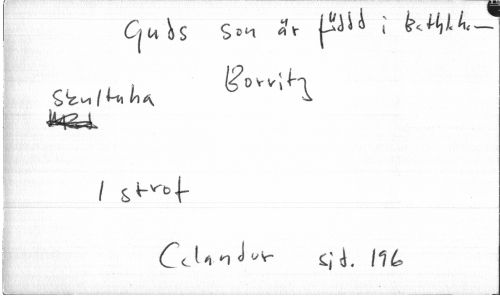 Guds son är född i Bethlehem
Borritz
Skultuna
1 strof
Celander sid. 196